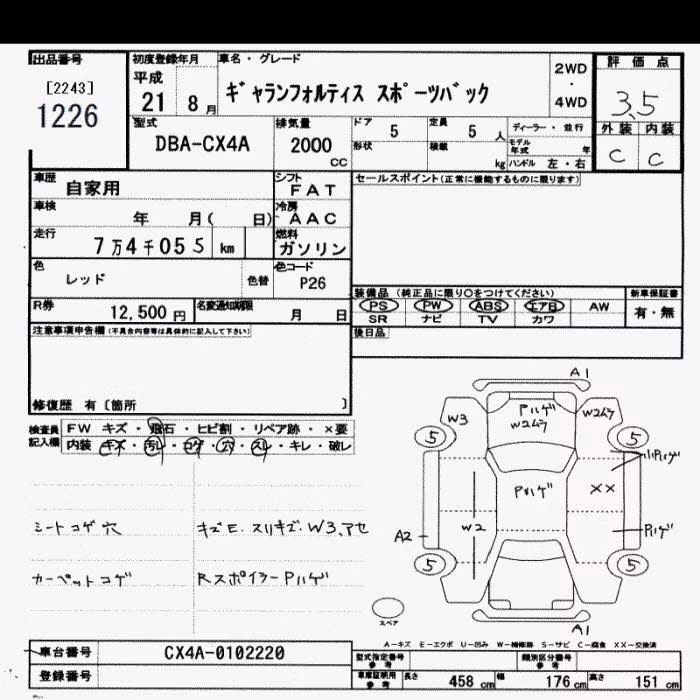 出品番号
[2243]
1226
初度登録年月
平成
21 8月
車名・グレード
ギャランフォルティス スポーツバック
2WD
・
4WD
評価点
3.5
外装 内装
C C
型式
DBA-CX4A
排気量
2000
cc
ドア
5
定員
5 人
形状
積載
kg
ディーラー・並行
モデル年式 年
ハンドル 左・右
車歴
自家用
シフト
FAT
車検
年 月( 日)
冷房
AAC
走行
7万4千055 km
燃料
ガソリン
色
レッド
色替
色コード
P26
R券
12,500 円
名変通知期限
月 日
セールスポイント(正常に機能するものに限ります)
装備品(純正品に限り○をつけてください)
PS PW ABS エアB AW
SR ナビ TV カワ
新車保証書
有・無
後日品
注意事項申告欄(不具合内容等は具体的に記入して下さい)
修復歴 有〔箇所 〕
検査員記入欄
FW キズ・飛石・ヒビ割・リペア跡・×要
内装 キズ・汚レ・コゲ・穴・スレ・キレ・破レ
シートコゲ穴
キズE.スリキズ.W3、アセ
カーペットコゲ
RスポイラーPハゲ
A1
W3
Pハゲ
W2ムラ
W2ムラ
5
5
小Pハゲ
Pハゲ
XX
A2
W2
Pハゲ
5
5
スペア
A1
A-キズ E-エクボ U-凹み W-補修跡 S-サビ C-腐食 XX-交換済
車台番号
CX4A-0102220
登録番号
型式指定番号
参考
類別区分番号
参考
車庫証明用
参考
長さ 458 cm
幅 176 cm
高さ 151 cm